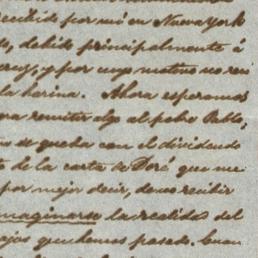 recibido por mí en Nueva York
debido principalmente á
y por cuyo motivo no
la harina. Ahora esperamos
remitir algo al pobre Pablo,
se queda con el dividendo
de la carta de Doré que me
por mejor decir, debo recibir
imaginarse la realidad del
que hemos pasado.